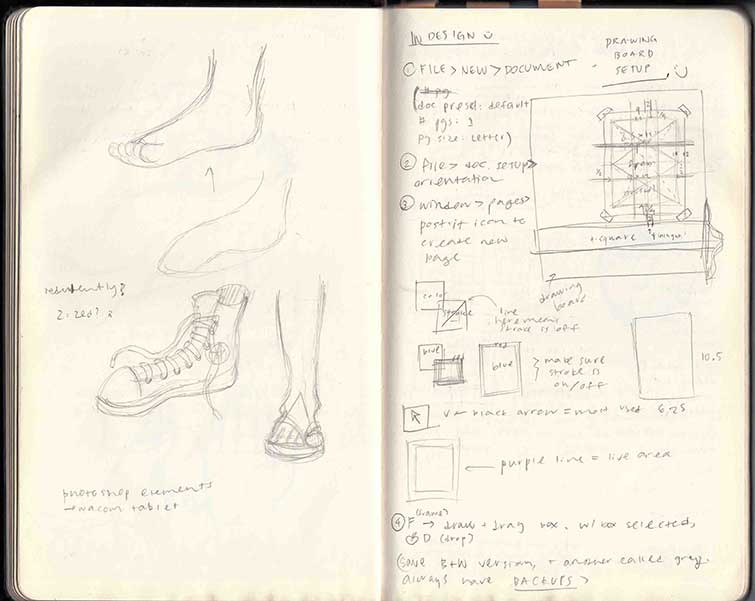 photoshop elements
→ wacom tablet
IN DESIGN
① FILE > NEW > DOCUMENT
(# pg
doc preset: default
# pgs: 1
pg size: letter)
② file > doc. setup >
orientation
③ window > pages >
post-it icon to
create new
page
DRAWING
BOARD
SETUP
t-square
drawing
board
color
stroke
line
here means
stroke is off
blue
red
blue
make sure
stroke is
on/off
10.5
6.25
V ← black arrow = most used
← purple line = live area
(frame)
④ F → draw + drag box. w/ box selected,
D (drop)
(save B+W version, + another called gray.
always have BACKUPS >